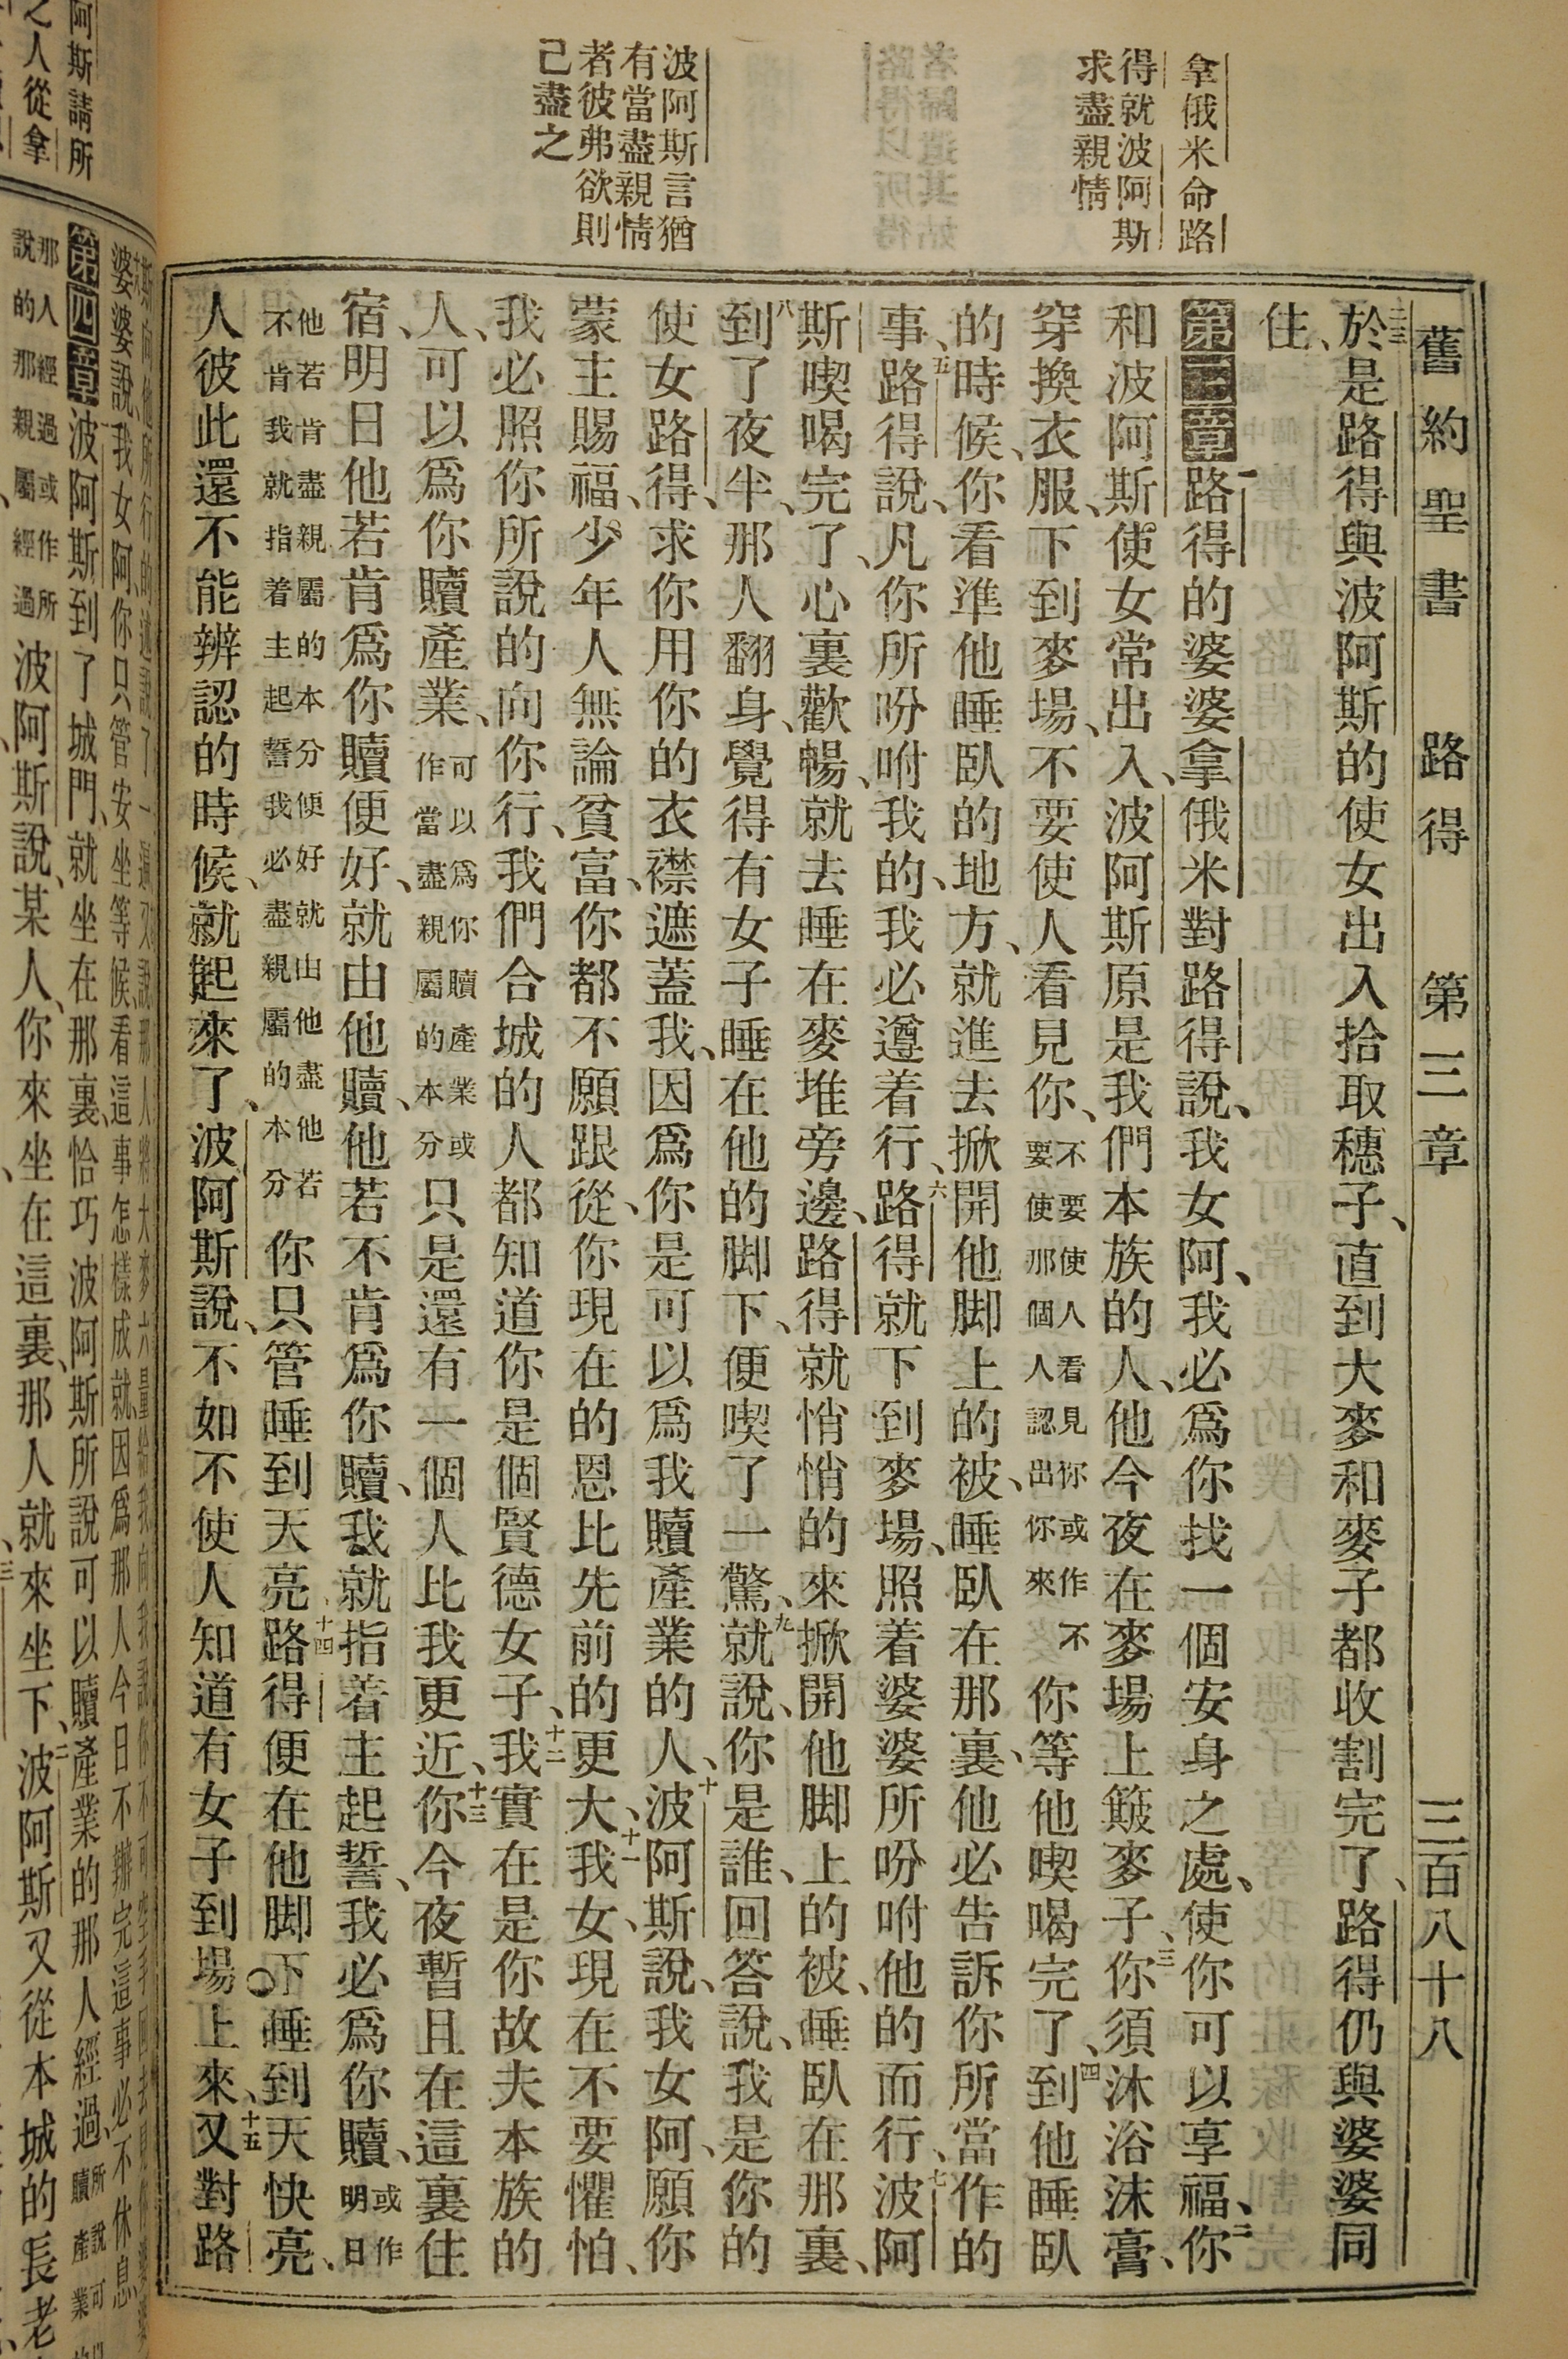 舊約聖書 路得 第三章 三百八十八
拿俄米命路
得就波阿斯
求盡親情
波阿斯言猶
有當盡親情
者彼弗欲則
己盡之
二三於是路得與波阿斯的使女出入拾取穗子、直到大麥和麥子都收割完了、路得仍與婆婆同
住、
第三章一路得的婆婆拿俄米對路得說、我女阿、我必爲你找一個安身之處、使你可以享福、二你
和波阿斯使女常出入、波阿斯原是我們本族的人、他今夜在麥場上簸麥子、三你須沐浴沫膏、
穿換衣服、下到麥場、不要使人看見你、不要使人看見你或作不要使那個人認出你來你等他喫喝完了、四到他睡臥
的時候、你看準他睡臥的地方、就進去掀開他脚上的被、睡臥在那裏、他必告訴你所當作的
事、五路得說、凡你所吩咐我的、我必遵着行、六路得就下到麥場、照着婆婆所吩咐他的而行、七波阿
斯喫喝完了、心裏歡暢、就去睡在麥堆旁邊、路得就悄悄的來掀開他脚上的被、睡臥在那裏、
八到了夜半、那人翻身、覺得有女子睡在他的脚下、便喫了一驚、九就說、你是誰、回答說、我是你的
使女路得、求你用你的衣襟遮蓋我、因爲你是可以爲我贖產業的人、十波阿斯說、我女阿、願你
蒙主賜福、少年人無論貧富、你都不願跟從、你現在的恩比先前的更大、十一我女、現在不要懼怕、
我必照你所說的向你行、我們合城的人都知道你是個賢德女子、十二我實在是你故夫本族的
人、可以爲你贖產業、可以爲你贖產業或作當盡親屬的本分只是還有一個人比我更近、十三你今夜暫且在這裏住
宿、明日他若肯爲你贖便好、就由他贖、他若不肯爲你贖、我就指着主起誓、我必爲你贖、或作明日
他若肯盡親屬的本分便好就由他盡他若不肯我就指着主起誓我必盡親屬的本分你只管睡到天亮十四路得便在他脚下睡到天快亮、
人彼此還不能辨認的時候、就起來了、波阿斯說、不如不使人知道有女子到場上來、十五又對路
第四章一波阿斯到了城門、就坐在那裏、恰巧波阿斯所說可以贖產業的那人經過、
波阿斯說、某人、你來坐在這裏、那人就來坐下、二波阿斯又從本城的長老